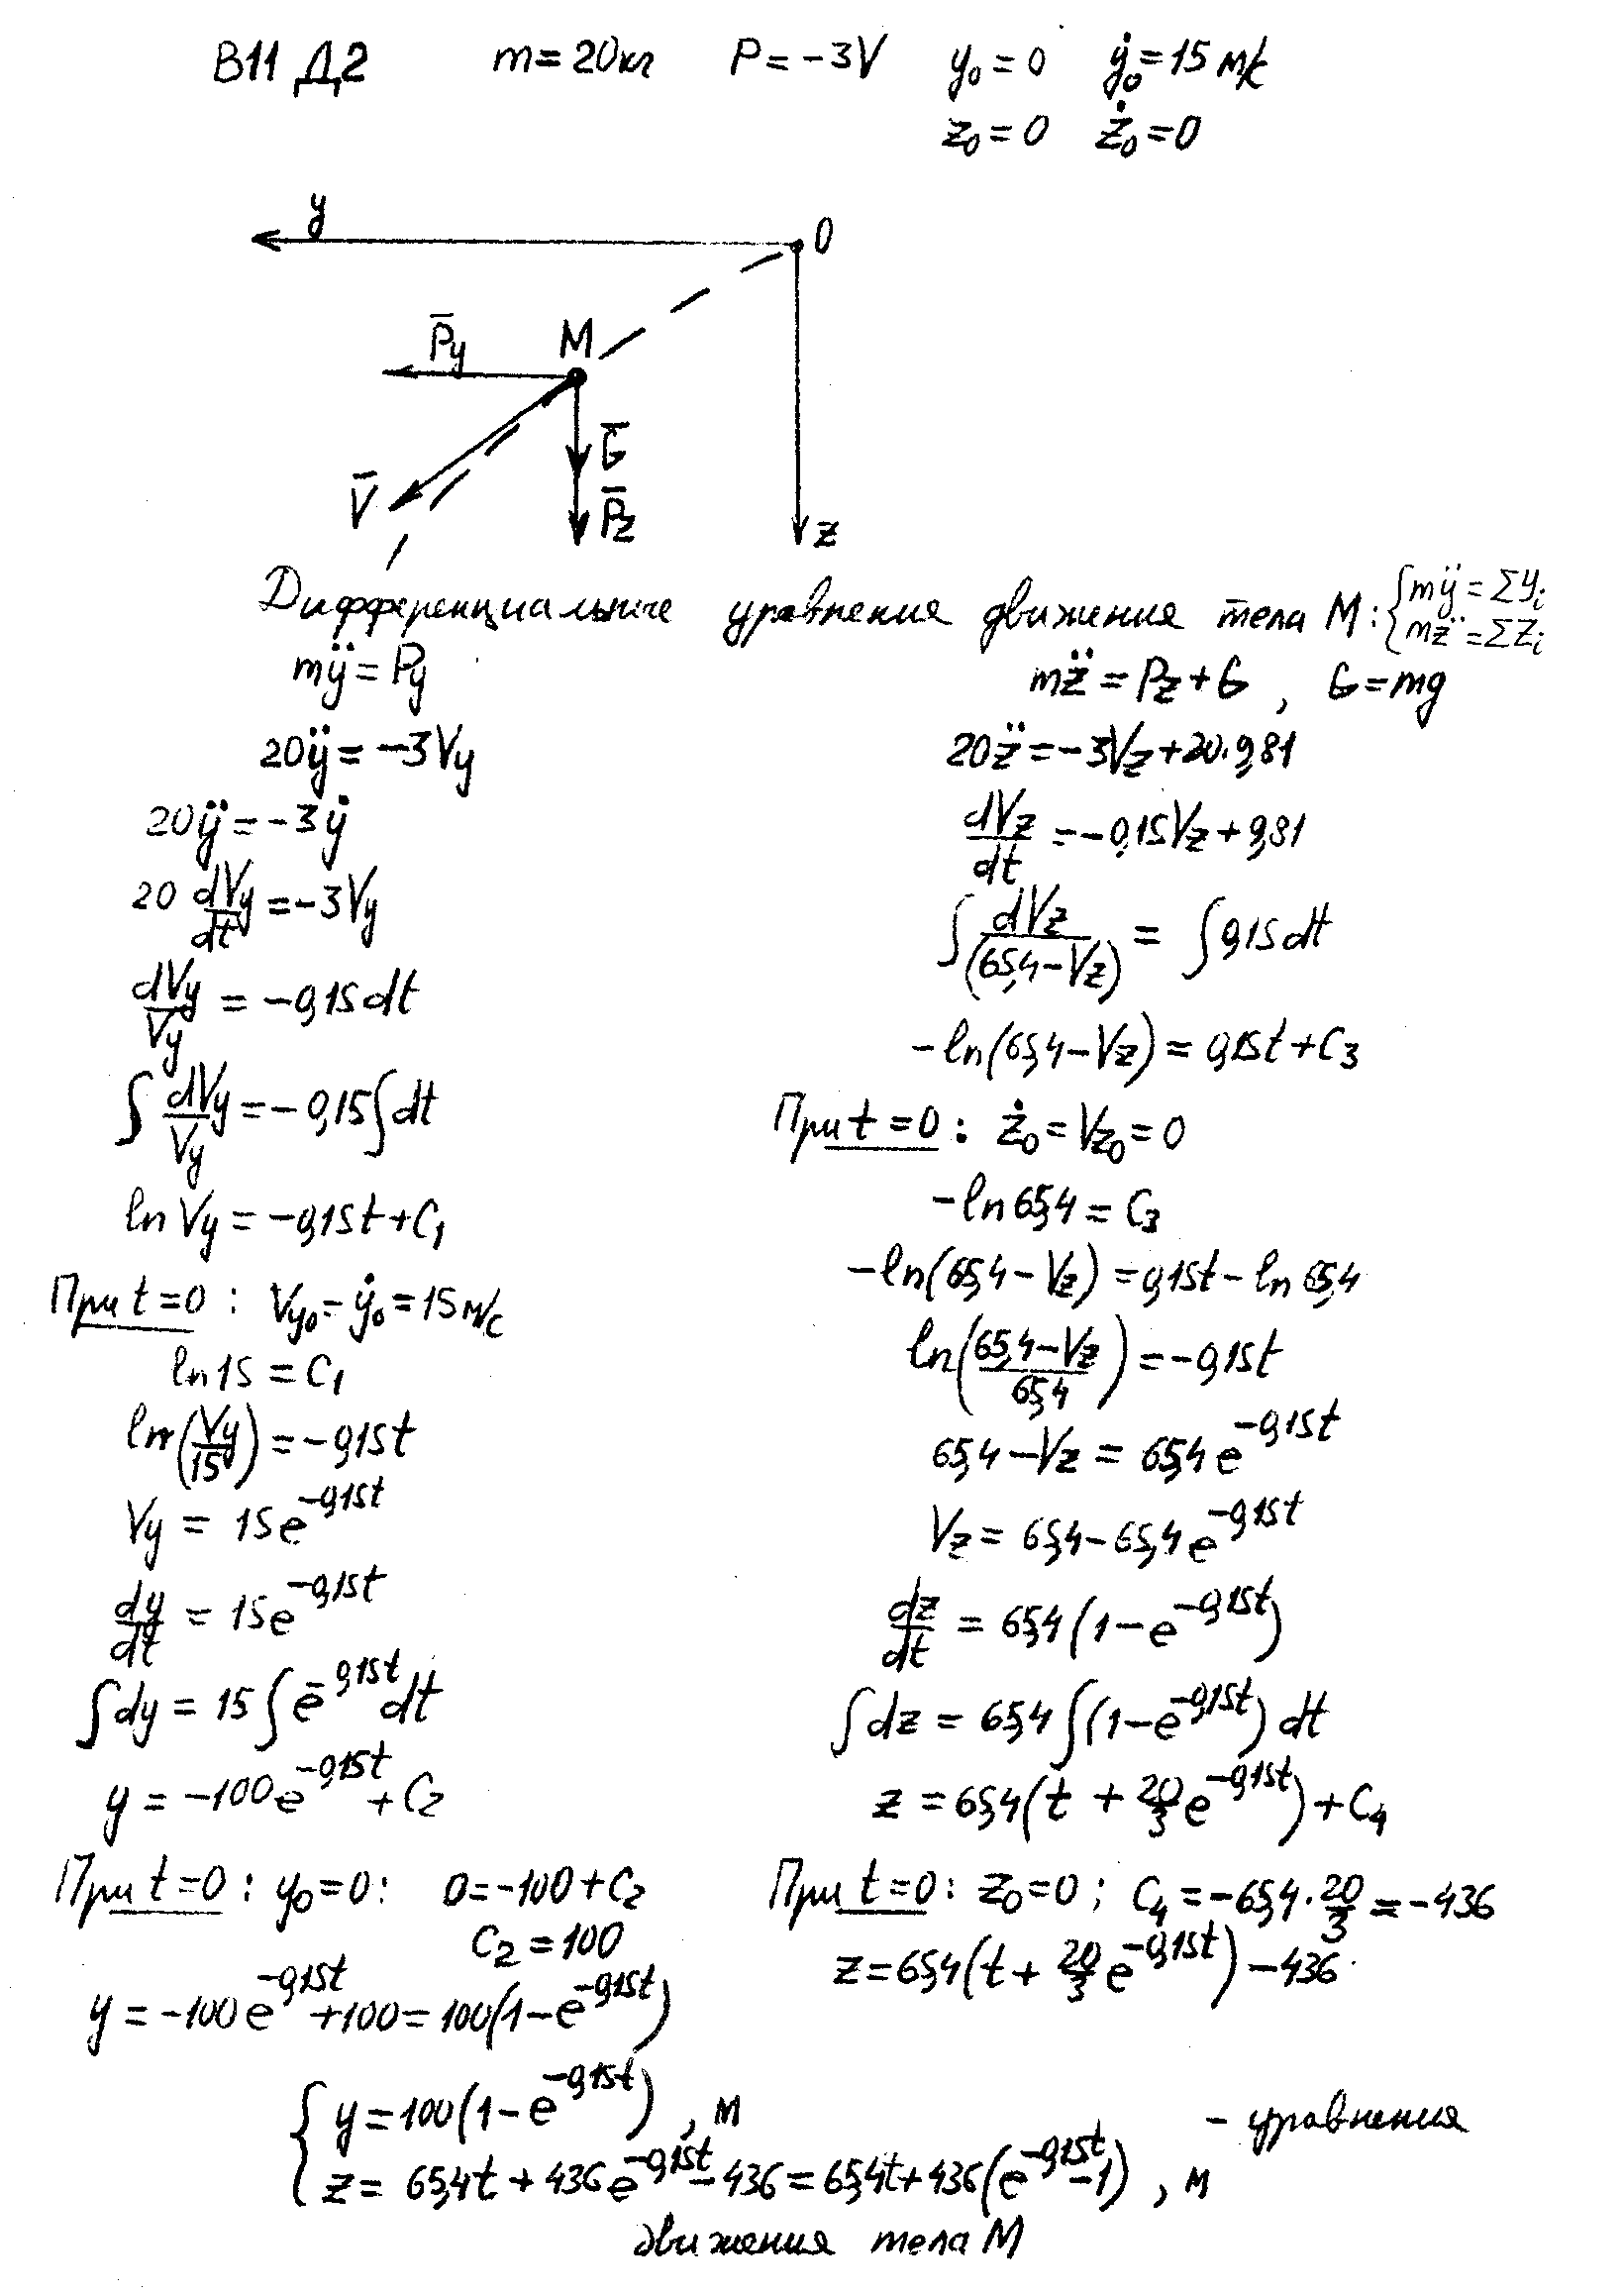 В11 Д2 m = 20кг P = -3V y₀ = 0 ẏ₀ = 15 м/с
z₀ = 0 ż₀ = 0
y
O
P̄y M
Ḡ
V̄ P̄z
z
Дифференциальные уравнения движения тела M: { mÿ = ΣYᵢ
mz̈ = ΣZᵢ
mÿ = Py
20ÿ = -3Vy
20ÿ = -3ẏ
20 dVy/dt = -3Vy
dVy/Vy = -0,15dt
∫ dVy/Vy = -0,15∫dt
ln Vy = -0,15t + C₁
При t = 0 : Vy₀ = ẏ₀ = 15 м/с
ln 15 = C₁
ln(Vy/15) = -0,15t
Vy = 15e^(-0,15t)
dy/dt = 15e^(-0,15t)
∫dy = 15∫e^(-0,15t)dt
y = -100e^(-0,15t) + C₂
При t = 0 : y₀ = 0 : 0 = -100 + C₂
C₂ = 100
y = -100e^(-0,15t) + 100 = 100(1 - e^(-0,15t))
mz̈ = Pz + G , G = mg
20z̈ = -3Vz + 20·9,81
dVz/dt = -0,15Vz + 9,81
∫ dVz/(65,4 - Vz) = ∫0,15dt
-ln(65,4 - Vz) = 0,15t + C₃
При t = 0 : ż₀ = Vz₀ = 0
-ln 65,4 = C₃
-ln(65,4 - Vz) = 0,15t - ln 65,4
ln((65,4 - Vz)/65,4) = -0,15t
65,4 - Vz = 65,4e^(-0,15t)
Vz = 65,4 - 65,4e^(-0,15t)
dz/dt = 65,4(1 - e^(-0,15t))
∫dz = 65,4∫(1 - e^(-0,15t))dt
z = 65,4(t + 20/3 e^(-0,15t)) + C₄
При t = 0 : z₀ = 0 ; C₄ = -65,4 · 20/3 = -436
z = 65,4(t + 20/3 e^(-0,15t)) - 436
{ y = 100(1 - e^(-0,15t)) , м
z = 65,4t + 436e^(-0,15t) - 436 = 65,4t + 436(e^(-0,15t) - 1) , м - уравнения
движения тела M